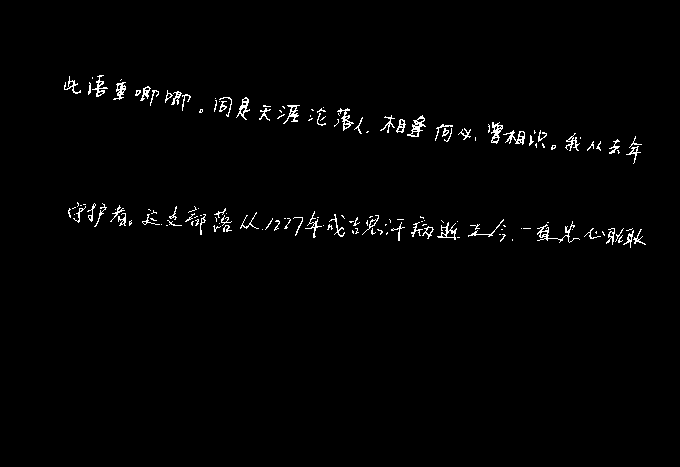 此语重唧唧。同是天涯沦落人,相逢何必曾相识。我从去年
守护者。这支部落从1227年成吉思汗病逝至今,一直忠心耿耿